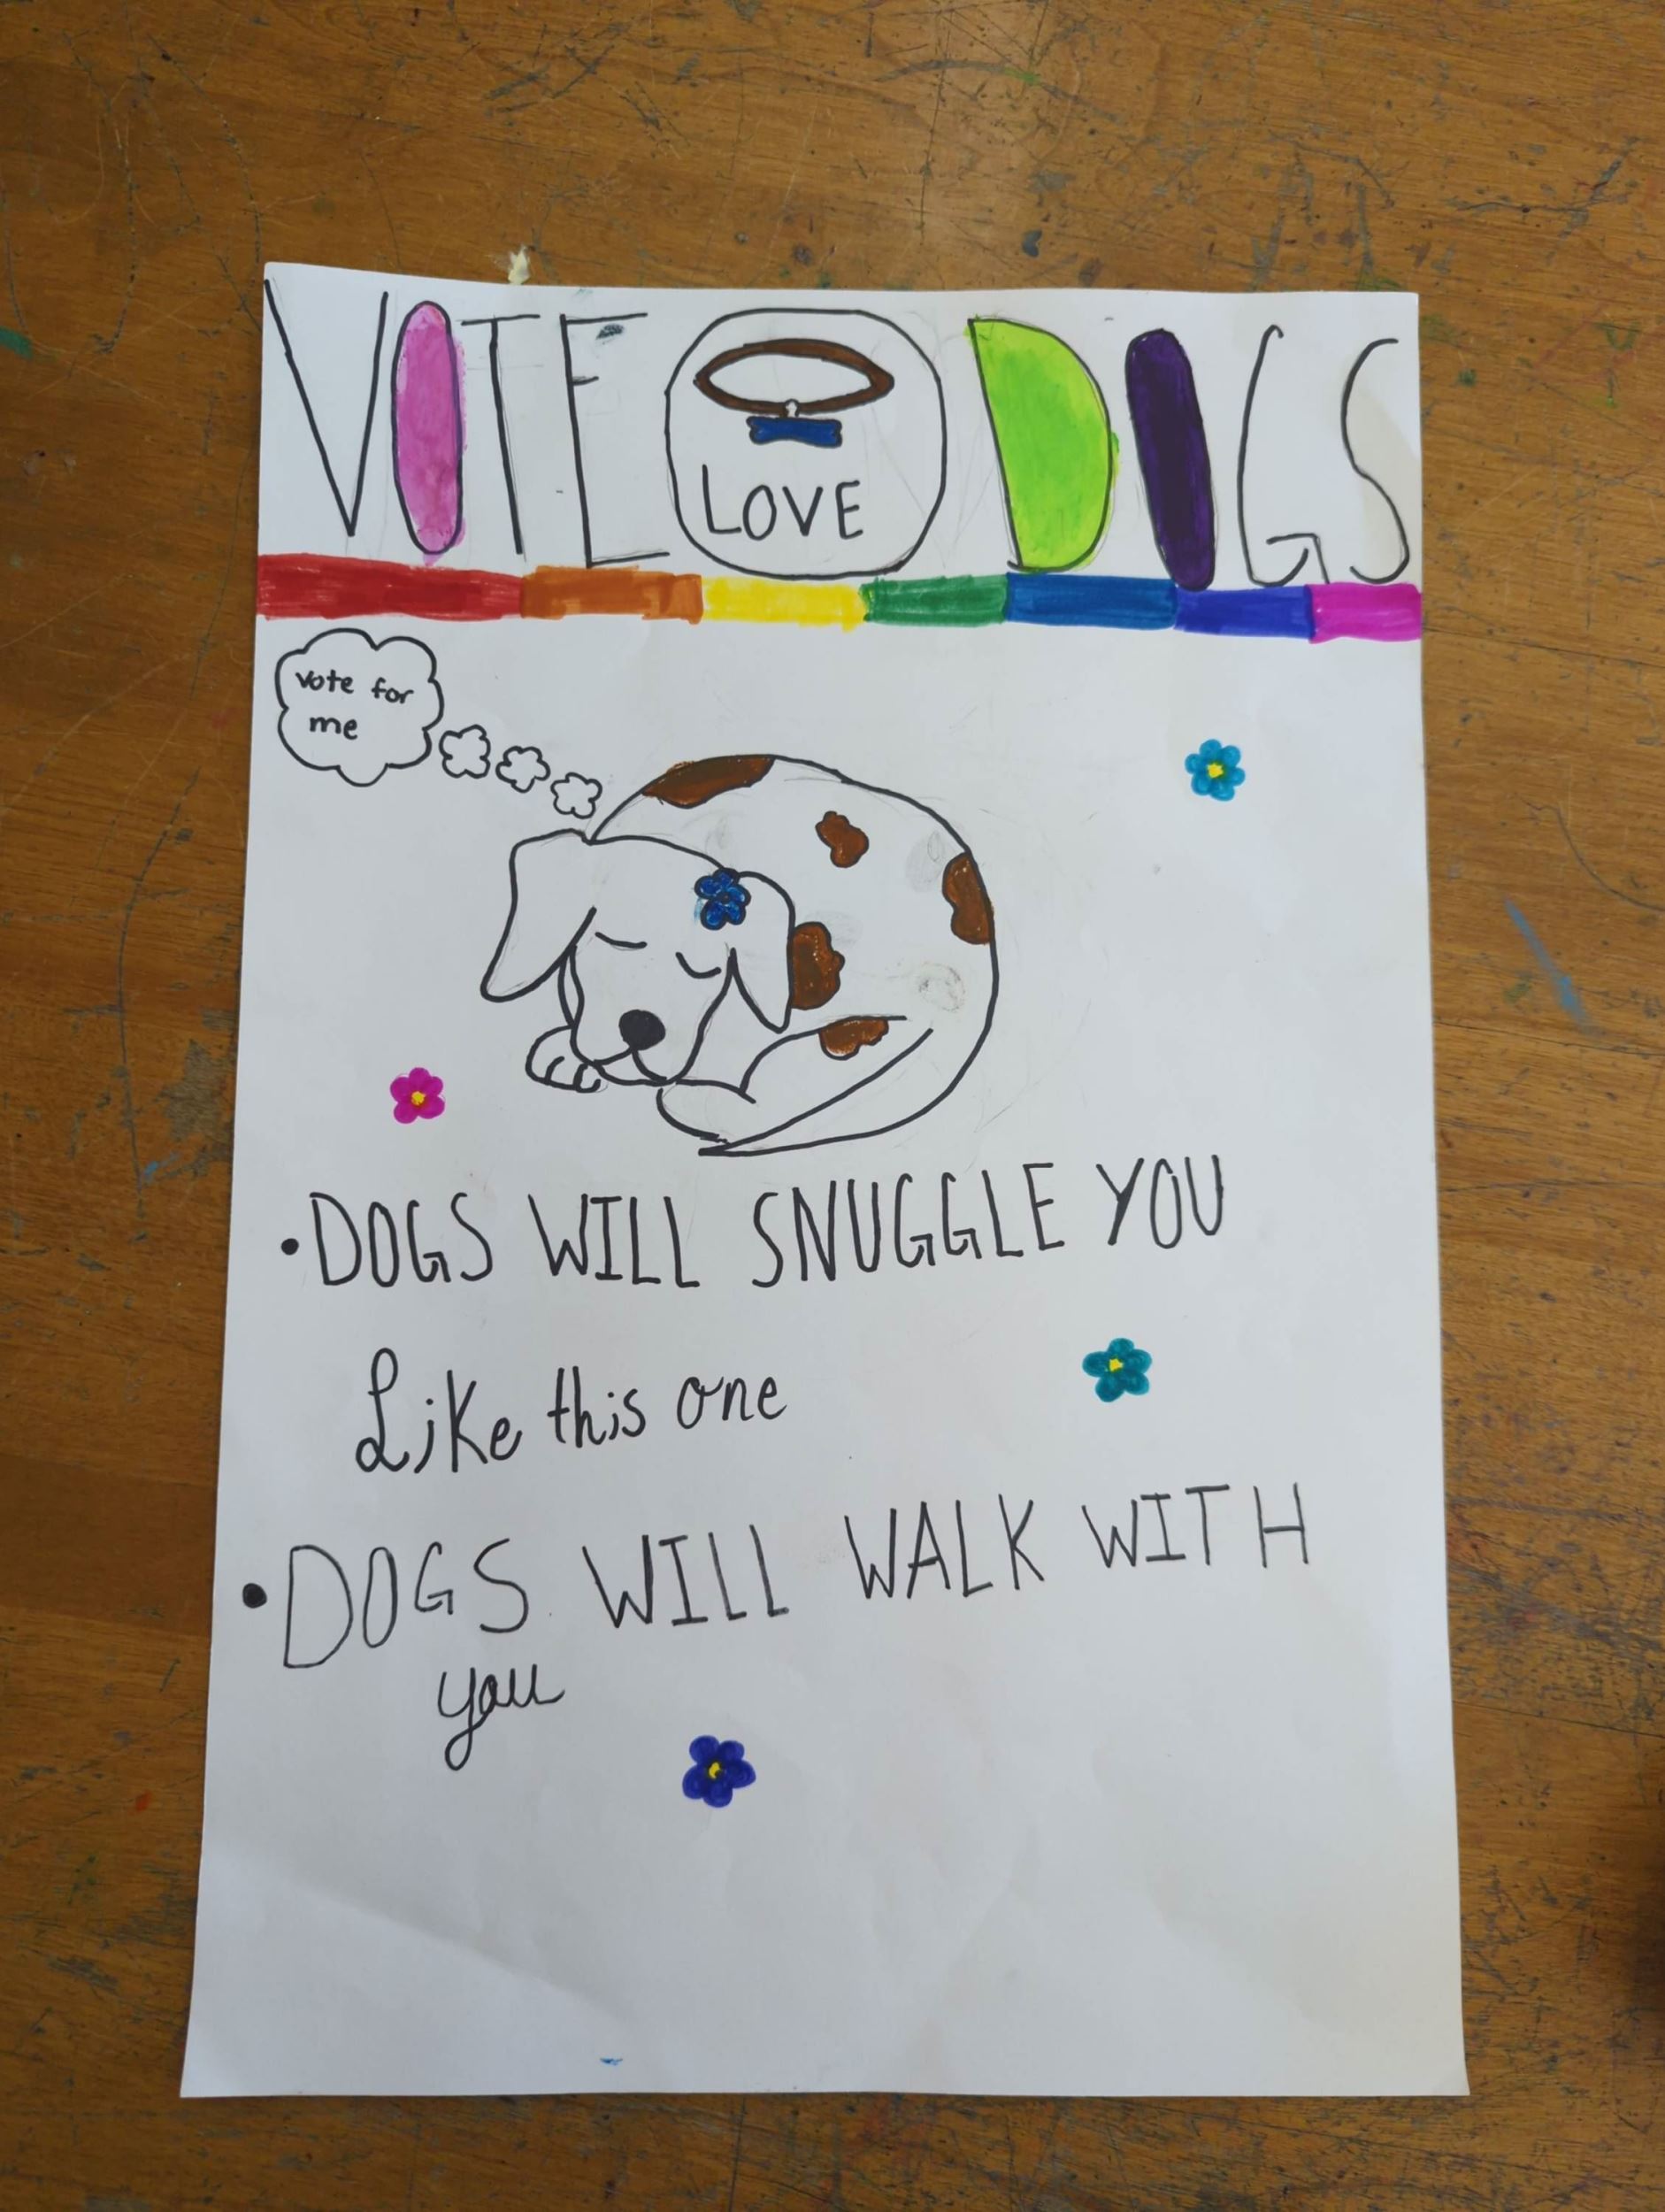 VOTE DOGS
LOVE
vote for
me
•DOGS WILL SNUGGLE YOU
Like this one
•DOGS WILL WALK WITH
you